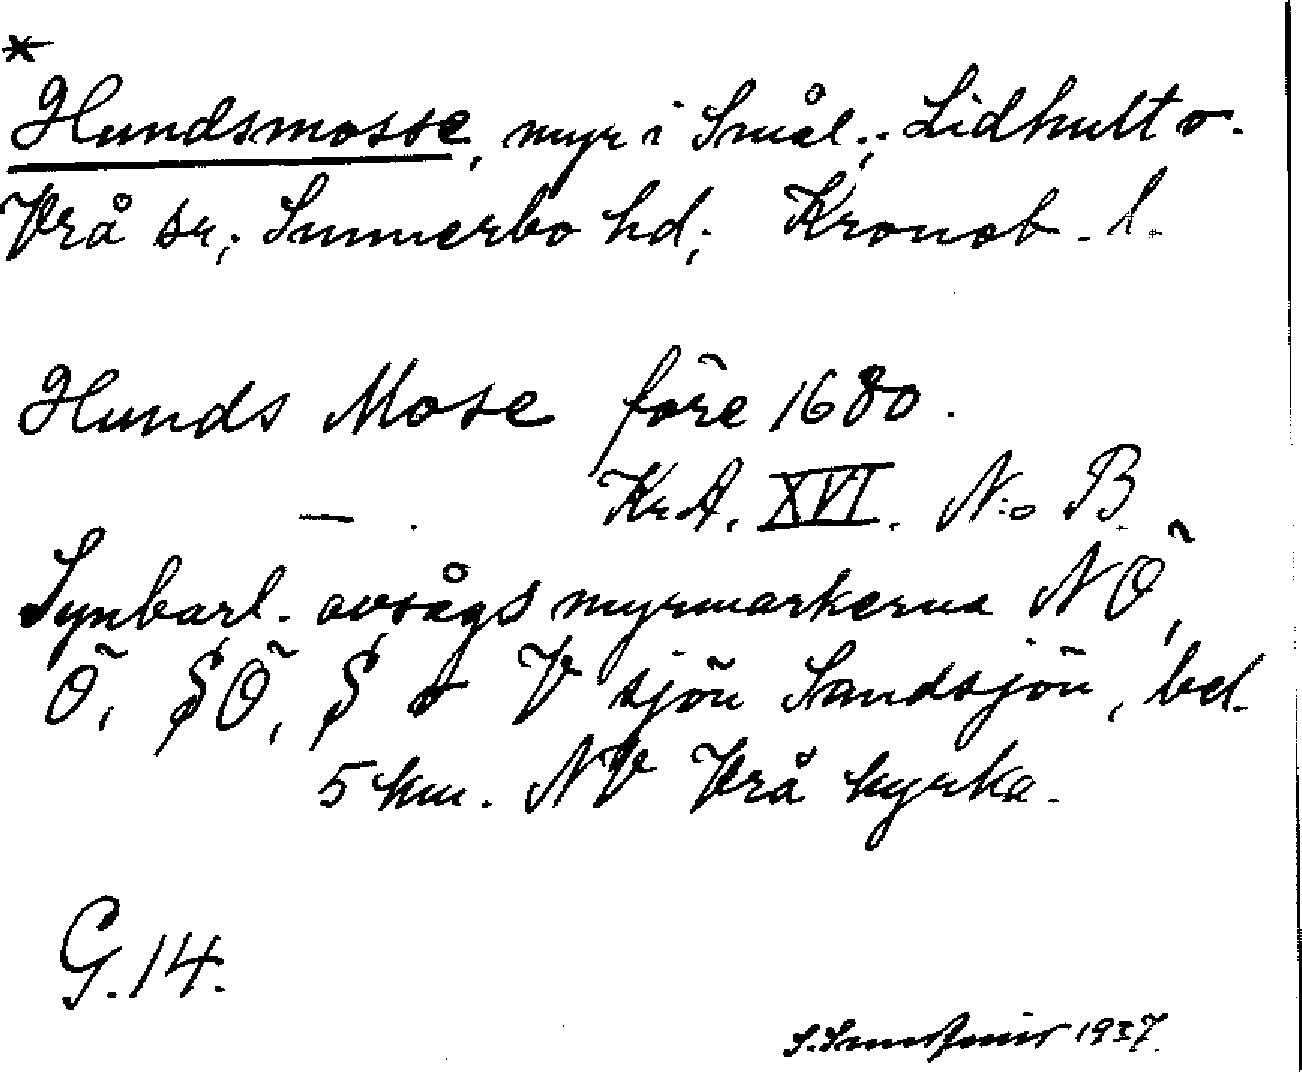 *
Hundsmosse, myr i Smål.; Lidhult o.
Vrå sr; Sunnerbo hd; Kronob. l.
Hunds Mose före 1680.
— . Kr.A. XVI. N:o B
Synbarl. avsågs myrmarkerna NÖ,
Ö, SÖ, S o V sjön Sandsjön, bel.
5 km. NV Vrå kyrka.
G.14.
1937.